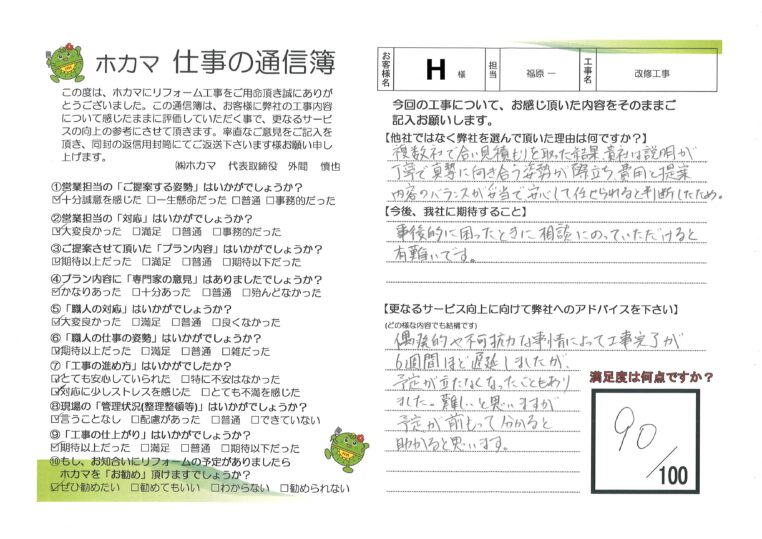 ホカマ 仕事の通信簿
この度は、ホカマにリフォーム工事をご用命頂き誠にありが
とうございました。この通信簿は、お客様に弊社の工事内容
について感じたままに評価していただく事で、更なるサービ
スの向上の参考にさせて頂きます。率直なご意見をご記入を
頂き、同封の返信用封筒にてご返送下さいます様お願い申し
上げます。
㈱ホカマ 代表取締役 外間 慎也
①営業担当の「ご提案する姿勢」はいかがでしょうか?
☑十分誠意を感じた □一生懸命だった □普通 □事務的だった
②営業担当の「対応」はいかがでしょうか?
☑大変良かった □満足 □普通 □事務的だった
③ご提案させて頂いた「プラン内容」はいかがでしょうか?
☑期待以上だった □満足 □普通 □期待以下だった
④プラン内容に「専門家の意見」はありましたでしょうか?
☑かなりあった □十分あった □普通 □殆んどなかった
⑤「職人の対応」はいかがでしょうか?
☑大変良かった □満足 □普通 □良くなかった
⑥「職人の仕事の姿勢」はいかがでしょうか?
☑期待以上だった □満足 □普通 □雑だった
⑦「工事の進め方」はいかがでしたか?
☑とても安心していられた □特に不安はなかった
☑対応に少しストレスを感じた □とても不満を感じた
⑧現場の「管理状況(整理整頓等)」はいかがでしょうか?
☑言うことなし □配慮があった □普通 □できていない
⑨「工事の仕上がり」はいかがでしょうか?
☑期待以上だった □満足 □普通 □期待以下だった
⑩もし、お知合いにリフォームの予定がありましたら
ホカマを「お勧め」頂けますでしょうか?
☑ぜひ勧めたい □勧めてもいい □わからない □勧められない
お客様名 H 様 担当 福原 一 工事名 改修工事
今回の工事について、お感じ頂いた内容をそのままご
記入お願いします。
【他社ではなく弊社を選んで頂いた理由は何ですか?】
複数社で合い見積もりを取った結果、貴社は説明が
丁寧で真摯に向き合う姿勢が際立ち、費用と提案
内容のバランスが妥当で安心して任せられると判断したため。
【今後、我社に期待すること】
事後的に困ったときに相談にのっていただけると
有難いです。
【更なるサービス向上に向けて弊社へのアドバイスを下さい】
(どの様な内容でも結構です)
偶発的や不可抗力な事情によって工事完了が
6週間ほど遅延しましたが、
予定が立たなくなったこともあり
ました。難しいと思いますが
予定が前もって分かると
助かると思います。
満足度は何点ですか?
90/100